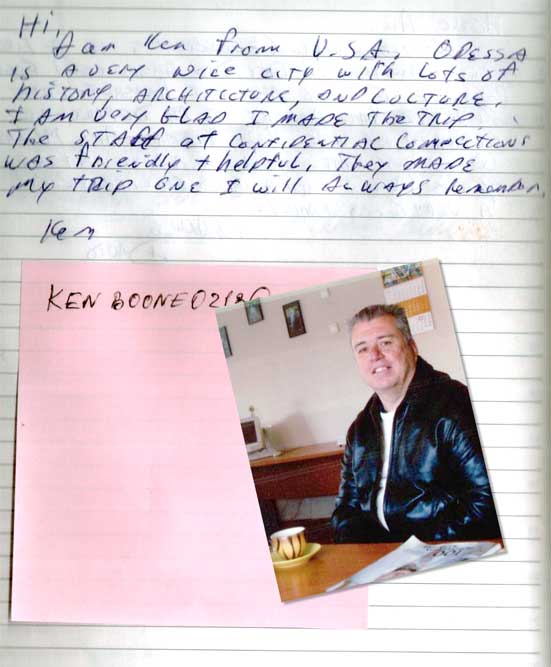 Hi,
I am Ken from U.S.A, ODESSA
is A very nice city with Lots of
history, ARCHITECTURE, AND CULTURE.
I AM very GLAD I MADE The TRIP
The STAff at CONFIDENTIAL CONNECTIONS
WAS friendly + helpful, They MADE
my TRIP ONE I will ALWAYS Remember.
Ken
KEN BOONE 02180